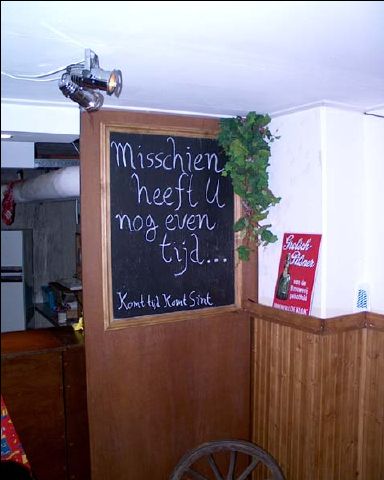 Misschien
heeft U
nog even
tijd...
Komt tijd Komt Sint
Grolsch
Pilsner
van de
Brouwerij